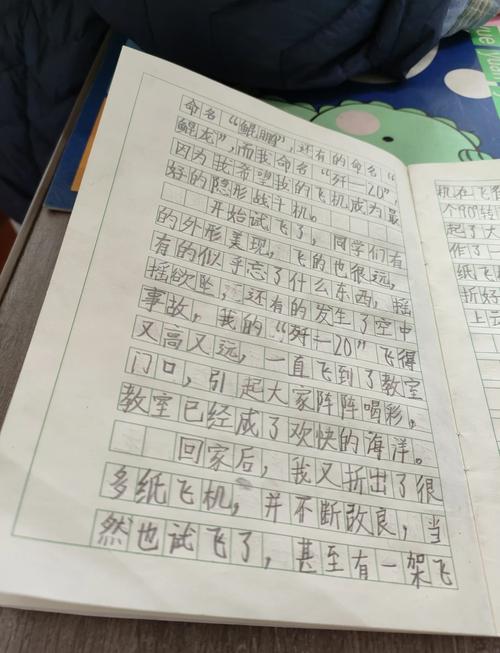 命名“鲲鹏”,还有的命名“
鲲龙”,而我命名“歼—20”,
因为我希望我的飞机成为最
好的隐形战斗机。
开始试飞了,同学们有
的外形美观,飞的也很远,
有的似乎忘了什么东西,摇
摇欲坠,还有的发生了空中
事故,我的“歼—20”飞得
又高又远,一直飞到了教室
门口,引起大家阵阵喝彩,
教室已经成了欢快的海洋。
回家后,我又折出了很
多纸飞机,并不断改良,当
然也试飞了,甚至有一架飞
机在飞
个90°转
起了大
作了
纸飞
折好
上云